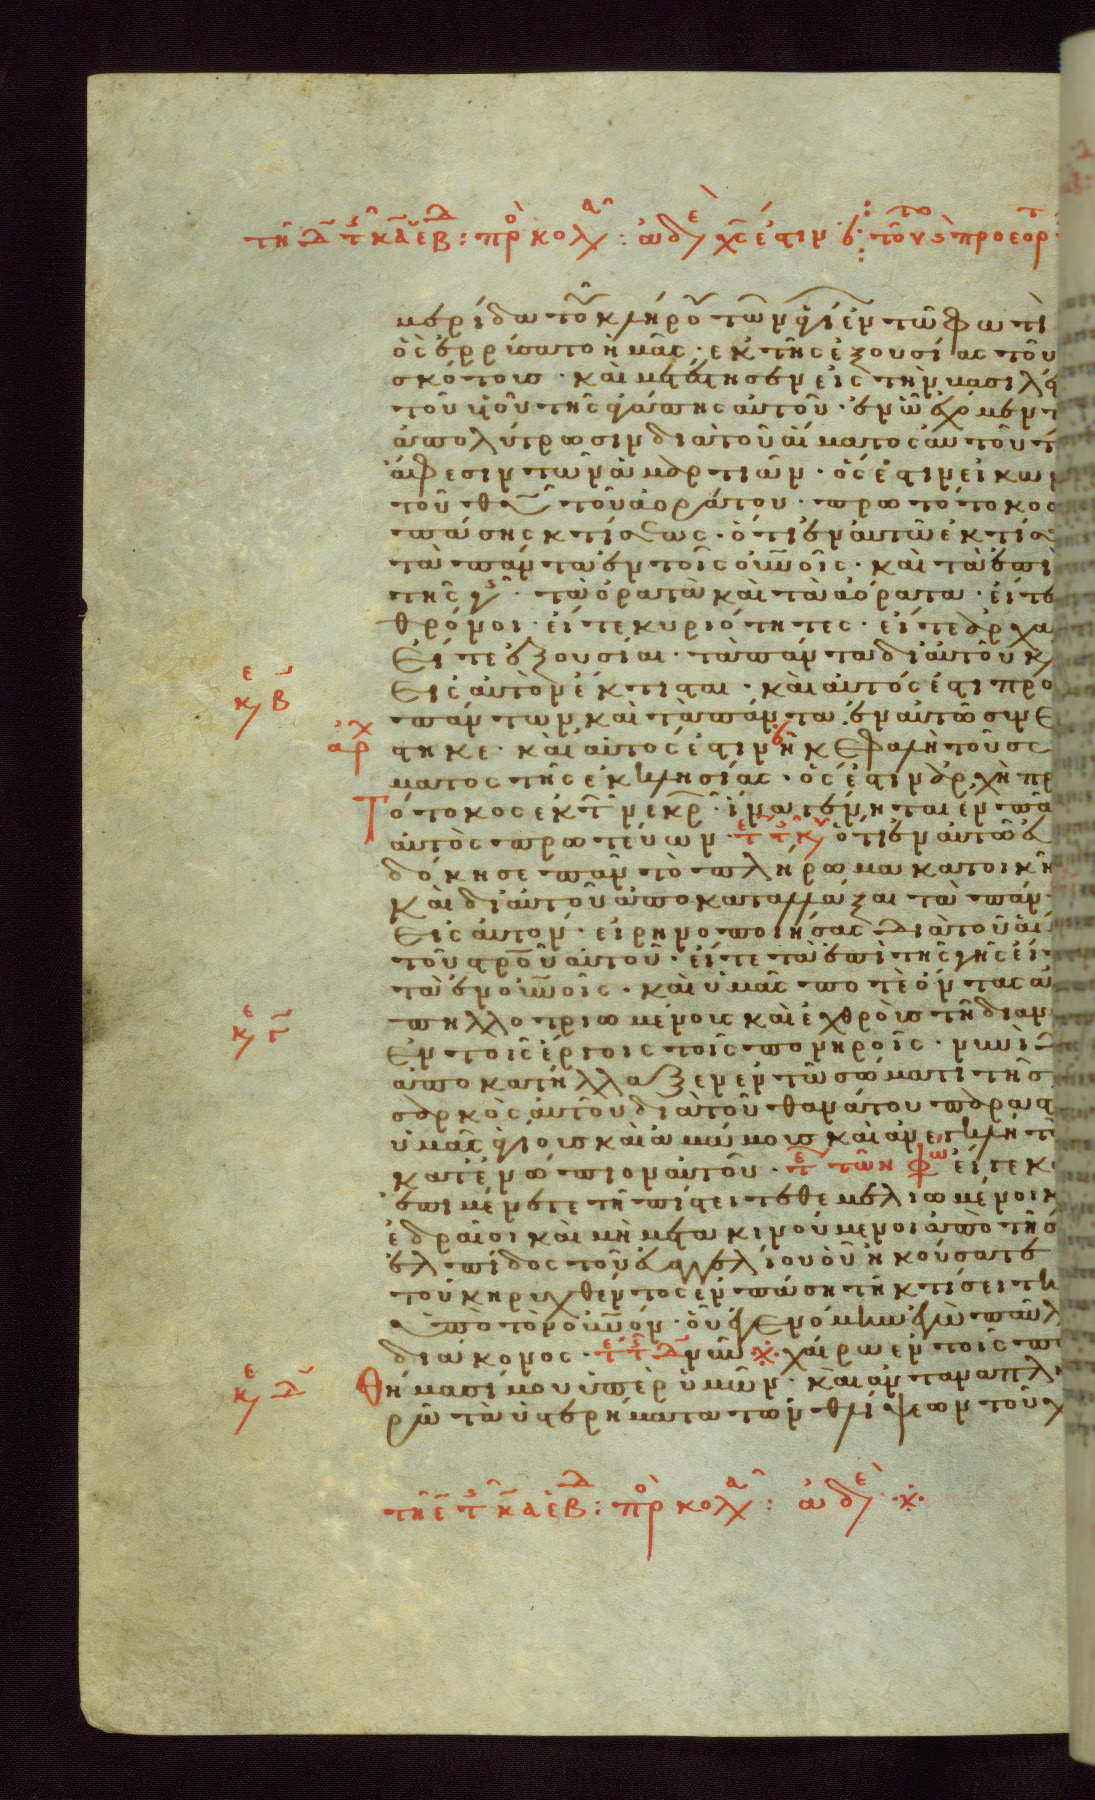 μερίδα τοῦ κλήρου τῶν ἁγίων ἐν τῶ φωτὶ
ὃς ἐρρύσατο ἡμᾶς · ἐκ τῆς ἐξουσίας τοῦ
σκότους · καὶ μετέστησεν εἰς τὴν βασιλεί
τοῦ υἱοῦ τῆς ἀγάπης αὐτοῦ · ἐν ὧ ἔχομεν τ
ἀπολύτρωσιν διὰ τοῦ αἵματος αὐτοῦ τ
ἄφεσιν τῶν ἁμαρτιῶν · ὅς ἐστιν εἰκὼν
τοῦ θυ τοῦ ἀοράτου · πρωτότοκος
πάσης κτίσεως · ὅτι ἐν αὐτῶ ἐκτίσ
τὰ πάντα ἐν τοῖς οὐνοῖς · καὶ τὰ ἐπὶ
τῆς γῆς · τὰ ὁρατὰ καὶ τὰ ἀόρατα · εἴτε
θρόνοι · εἴτε κυριότητες · εἴτε ἀρχαὶ
εἴτε ἐξουσίαι · τὰ πάντα δι αὐτοῦ κ
κε Β
εἰς αὐτὸν ἔκτισται · καὶ αὐτός ἐστι πρὸ
πάντων καὶ τὰ πάντα ἐν αὐτῶ συνέ
ἀρχ
στηκε · καὶ αὐτός ἐστιν ἡ κεφαλὴ τοῦ σώ
ματος τῆς ἐκκλησίας · ὅς ἐστιν ἀρχὴ πρ
τότοκος ἐκ τ νεκρ · ἵνα γένηται ἐν πᾶ
αὐτὸς πρωτεύων · ὅτι ἐν αὐτῶ ε
δόκησε πᾶν τὸ πλήρωμα κατοικῆ
καὶ δι αὐτοῦ ἀποκαταλλάξαι τὰ πάν
εἰς αὐτόν · εἰρηνοποιήσας διὰ τοῦ αἵ
τοῦ στροῦ αὐτοῦ · εἴτε τὰ ἐπὶ τῆς γῆς εἴ
τὰ ἐν οὐνοῖς · καὶ ὑμᾶς ποτὲ ὄντας ἀ
κε Γ
πηλλοτριωμένους καὶ ἐχθροὺς τῆ διαν
ἐν τοῖς ἔργοις τοῖς πονηροῖς · νυνὶ δ
ἀποκατήλλαξεν ἐν τῶ σώματι τῆς
σαρκὸς αὐτοῦ διὰ τοῦ θανάτου παραστ
ὑμᾶς ἁγίους καὶ ἀμώμους καὶ ἀνεγκλήτ
κατενώπιον αὐτοῦ · εἴ γε κ
ἐπιμένετε τῆ πίστει τεθεμελιωμένοι κ
ἑδραῖοι καὶ μὴ μετακινούμενοι ἀπὸ τῆς
ἐλπίδος τοῦ εὐαγγελίου οὗ ἠκούσατε
τοῦ κηρυχθέντος ἐν πάση τῆ κτίσει τῆ
ὑπὸ τὸν οὐνόν · οὗ ἐγενόμην ἐγὼ παῦλ
διάκονος · νῦν χαίρω ἐν τοῖς πα
κε Δ
θήμασί μου ὑπὲρ ὑμῶν · καὶ ἀνταναπλη
ρῶ τὰ ὑστερήματα τῶν θλίψεων τοῦ χ